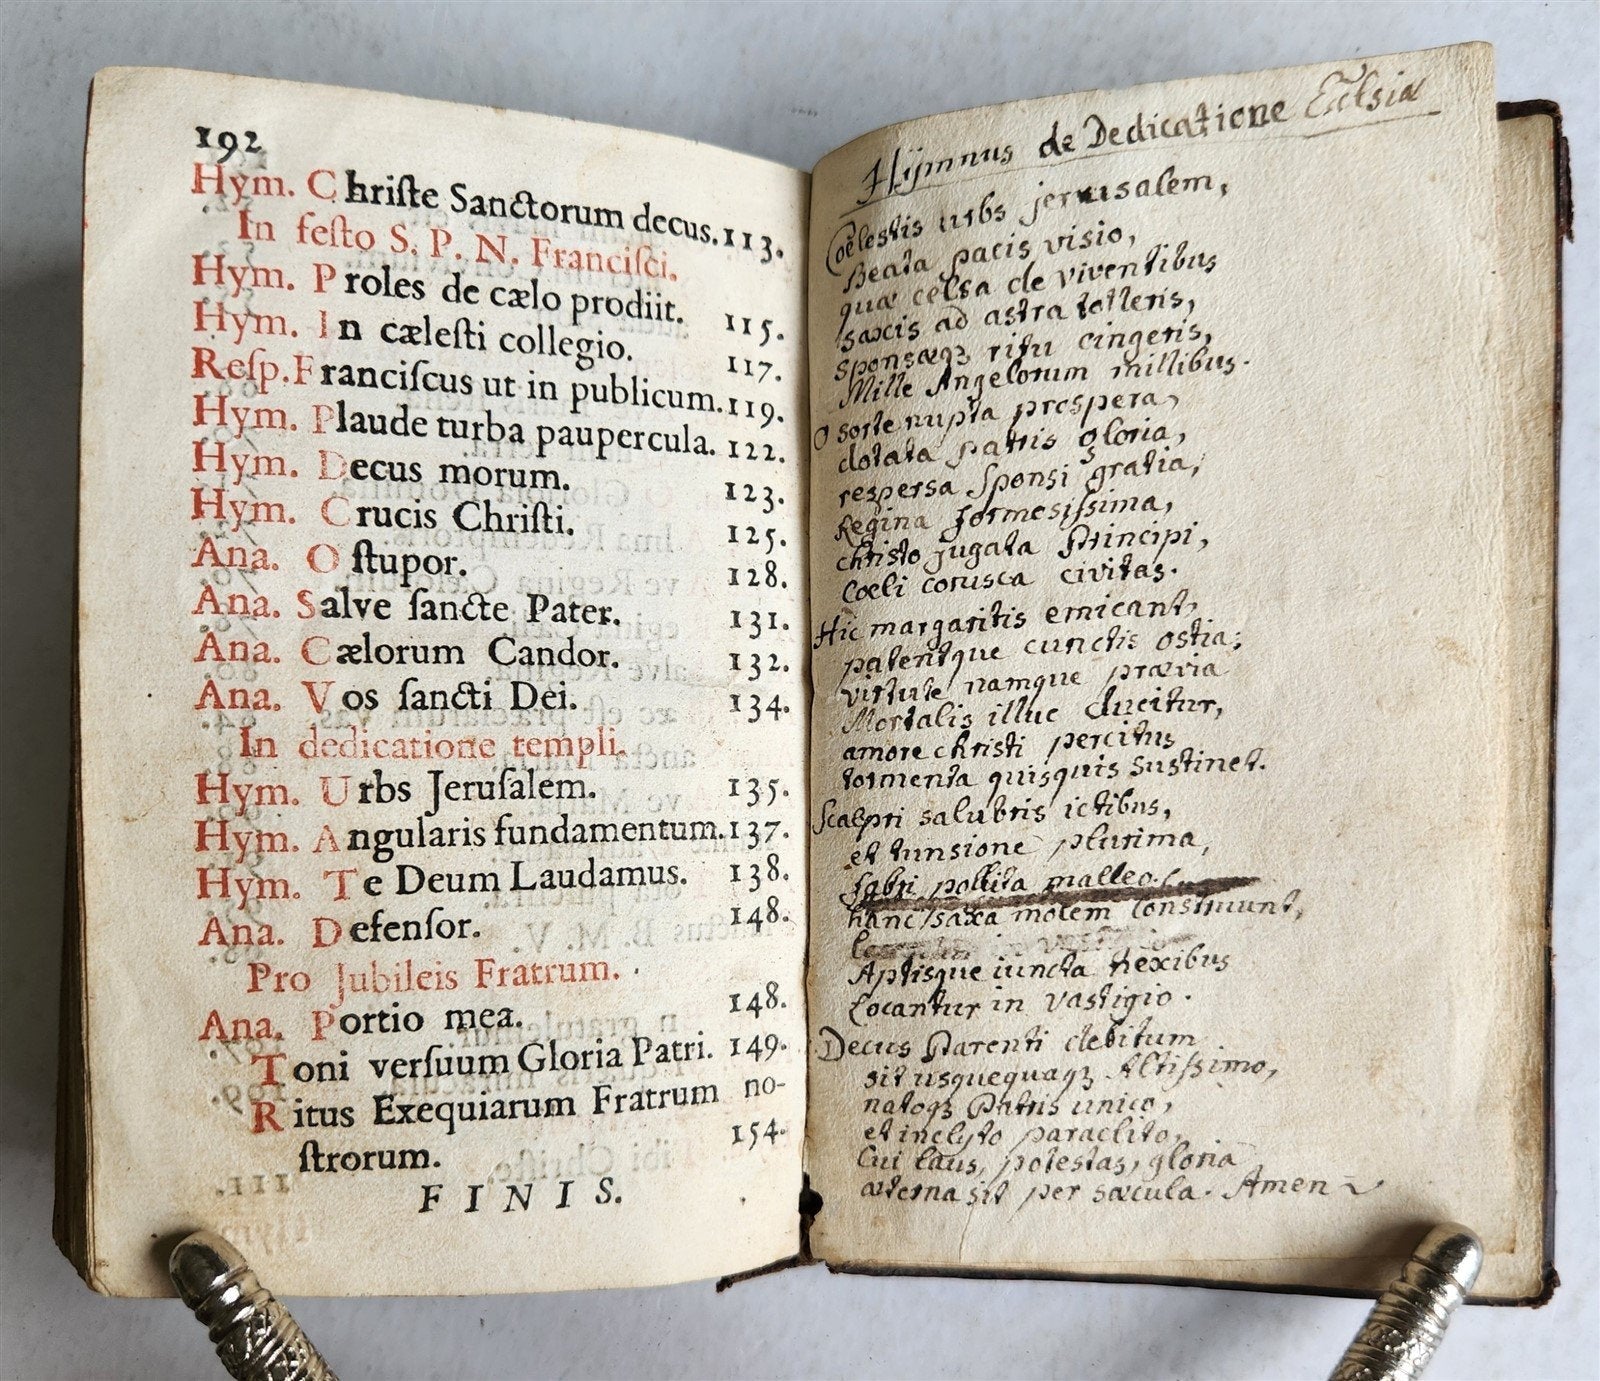 192
Hym. Chriſte Sanctorum decus. 113.
In feſto S. P. N. Franciſci.
Hym. Proles de cælo prodiit. 115.
Hym. In cæleſti collegio. 117.
Reſp. Franciſcus ut in publicum. 119.
Hym. Plaude turba paupercula. 122.
Hym. Decus morum. 123.
Hym. Crucis Chriſti. 125.
Ana. O ſtupor. 128.
Ana. Salve ſancte Pater. 131.
Ana. Cælorum Candor. 132.
Ana. Vos ſancti Dei. 134.
In dedicatione templi.
Hym. Urbs Jeruſalem. 135.
Hym. Angularis fundamentum. 137.
Hym. Te Deum Laudamus. 138.
Ana. Defenſor. 148.
Pro Jubileis Fratrum.
Ana. Portio mea. 148.
Toni verſuum Gloria Patri. 149.
Ritus Exequiarum Fratrum no-
ſtrorum. 154.
FINIS.
Hÿmnus de Dedicatione
Cœlestis urbs jerusalem,
Beata pacis visio,
quæ celsa de viventibus
saxis ad astra tolleris,
sponsæqz ritu cingeris,
Mille Angelorum millibus.
O sorte nupta prospera,
dotata patris gloria,
respersa Sponsi gratia,
Regina formosiſsima,
christo jugata Principi,
Cœli corusca civitas.
Hic margaritis emicant,
patentque cunctis ostia;
virtute namque prævia
Mortalis illuc ducitur,
amore christi percitus
tormenta quisquis sustinet.
Scalpri salubris ictibus,
et tunsione plurima,
fabri polita malleo.
hanc saxa molem Construunt,
Aptisque iuncta nexibus
Locantur in vastigio.
Decus Parenti debitum
sit usquequaqz Altiſsimo,
natoqz Patris unico,
et inclyto paraclito,
Cui laus, potestas, gloria
æterna sit per sæcula. Amen